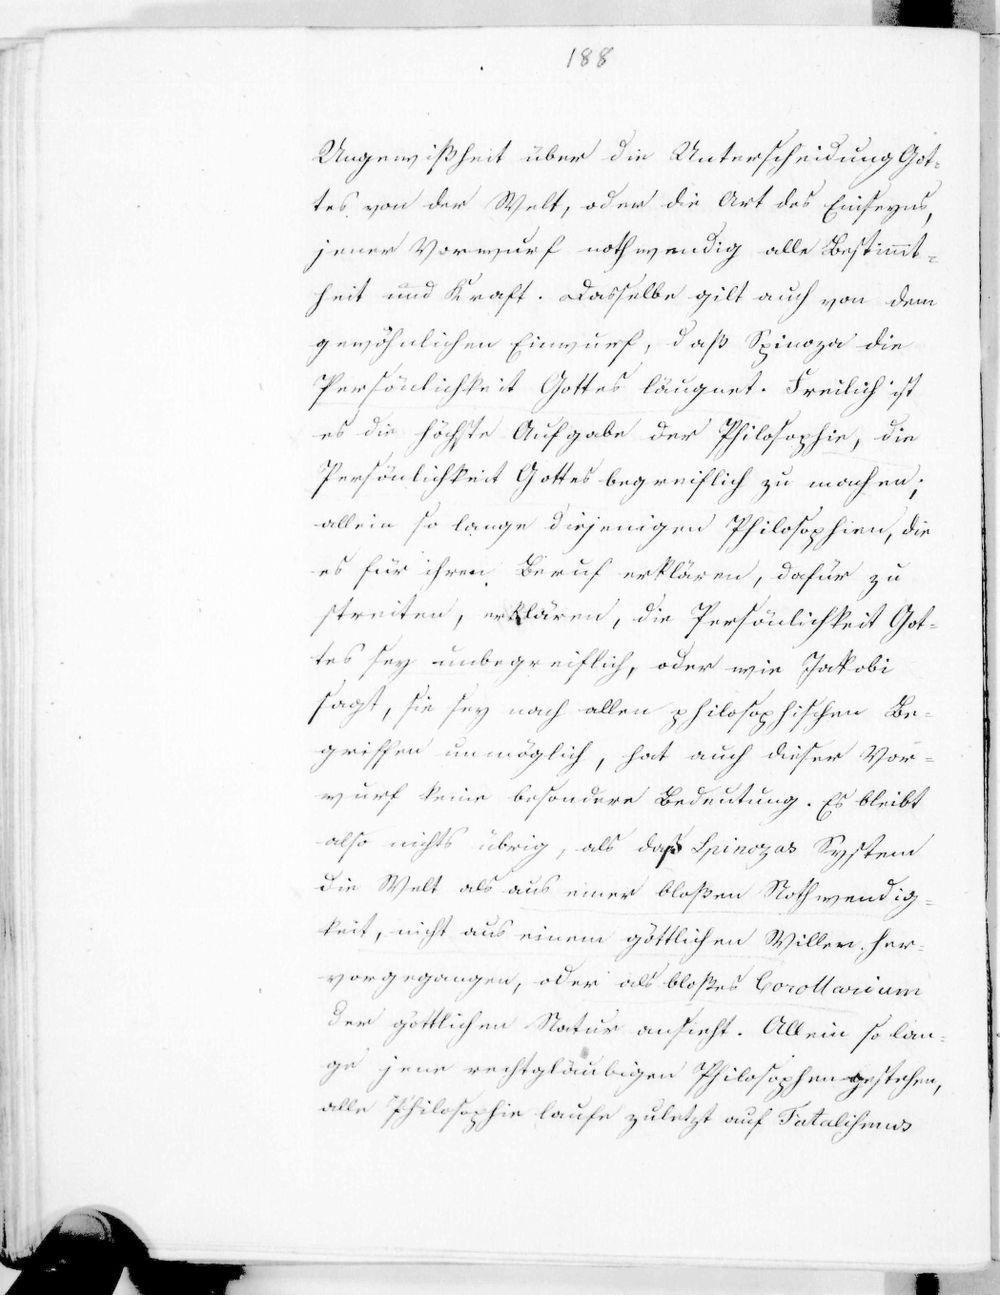 188
Ungewißheit über die Unterscheidung Got=
tes von der Welt, oder die Art des Einseyns,
jener Vorwurf nothwendig alle Bestim̅t=
heit und Kraft. Dasselbe gilt auch von dem
gewöhnlichen Einwurf, daß Spinoza die
Persönlichkeit Gottes läugnet. Freilich ist
es die höchste Aufgabe der Philosophie, die
Persönlichkeit Gottes begreiflich zu machen;
allein so lange diejenigen Philosophien, die
es für ihren Beruf erklären, dafür zu
streiten, erklären, die Persönlichkeit Got=
tes sey unbegreiflich, oder wie Jakobi
sagt, sie sey nach allen philosophischen Be=
griffen unmöglich, hat auch dieser Vor=
wurf keine besondere Bedeutung. Es bleibt
also nichts übrig, als daß Spinozas System
die Welt als aus einer bloßen Nothwendig=
keit, nicht aus einem göttlichen Willen her=
vorgegangen, oder als bloßes Corollarium
der göttlichen Natur ansieht. Allein so lan=
ge jene rechtgläubigen Philosophen gestehen,
alle Philosophie laufe zuletzt auf Fatalismus